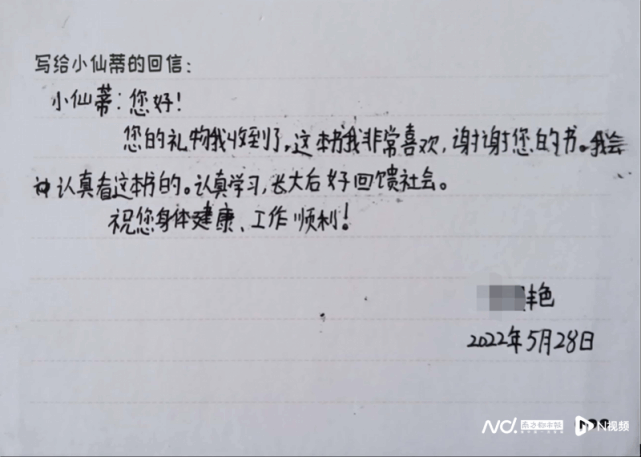 写给小仙蒂的回信：
小仙蒂：您好！
您的礼物我收到了。这本书我非常喜欢，谢谢您的书。我会
认真看这本书的。认真学习，长大后好回馈社会。
祝您身体健康、工作顺利！
丰色
2022年5月28日
N视频